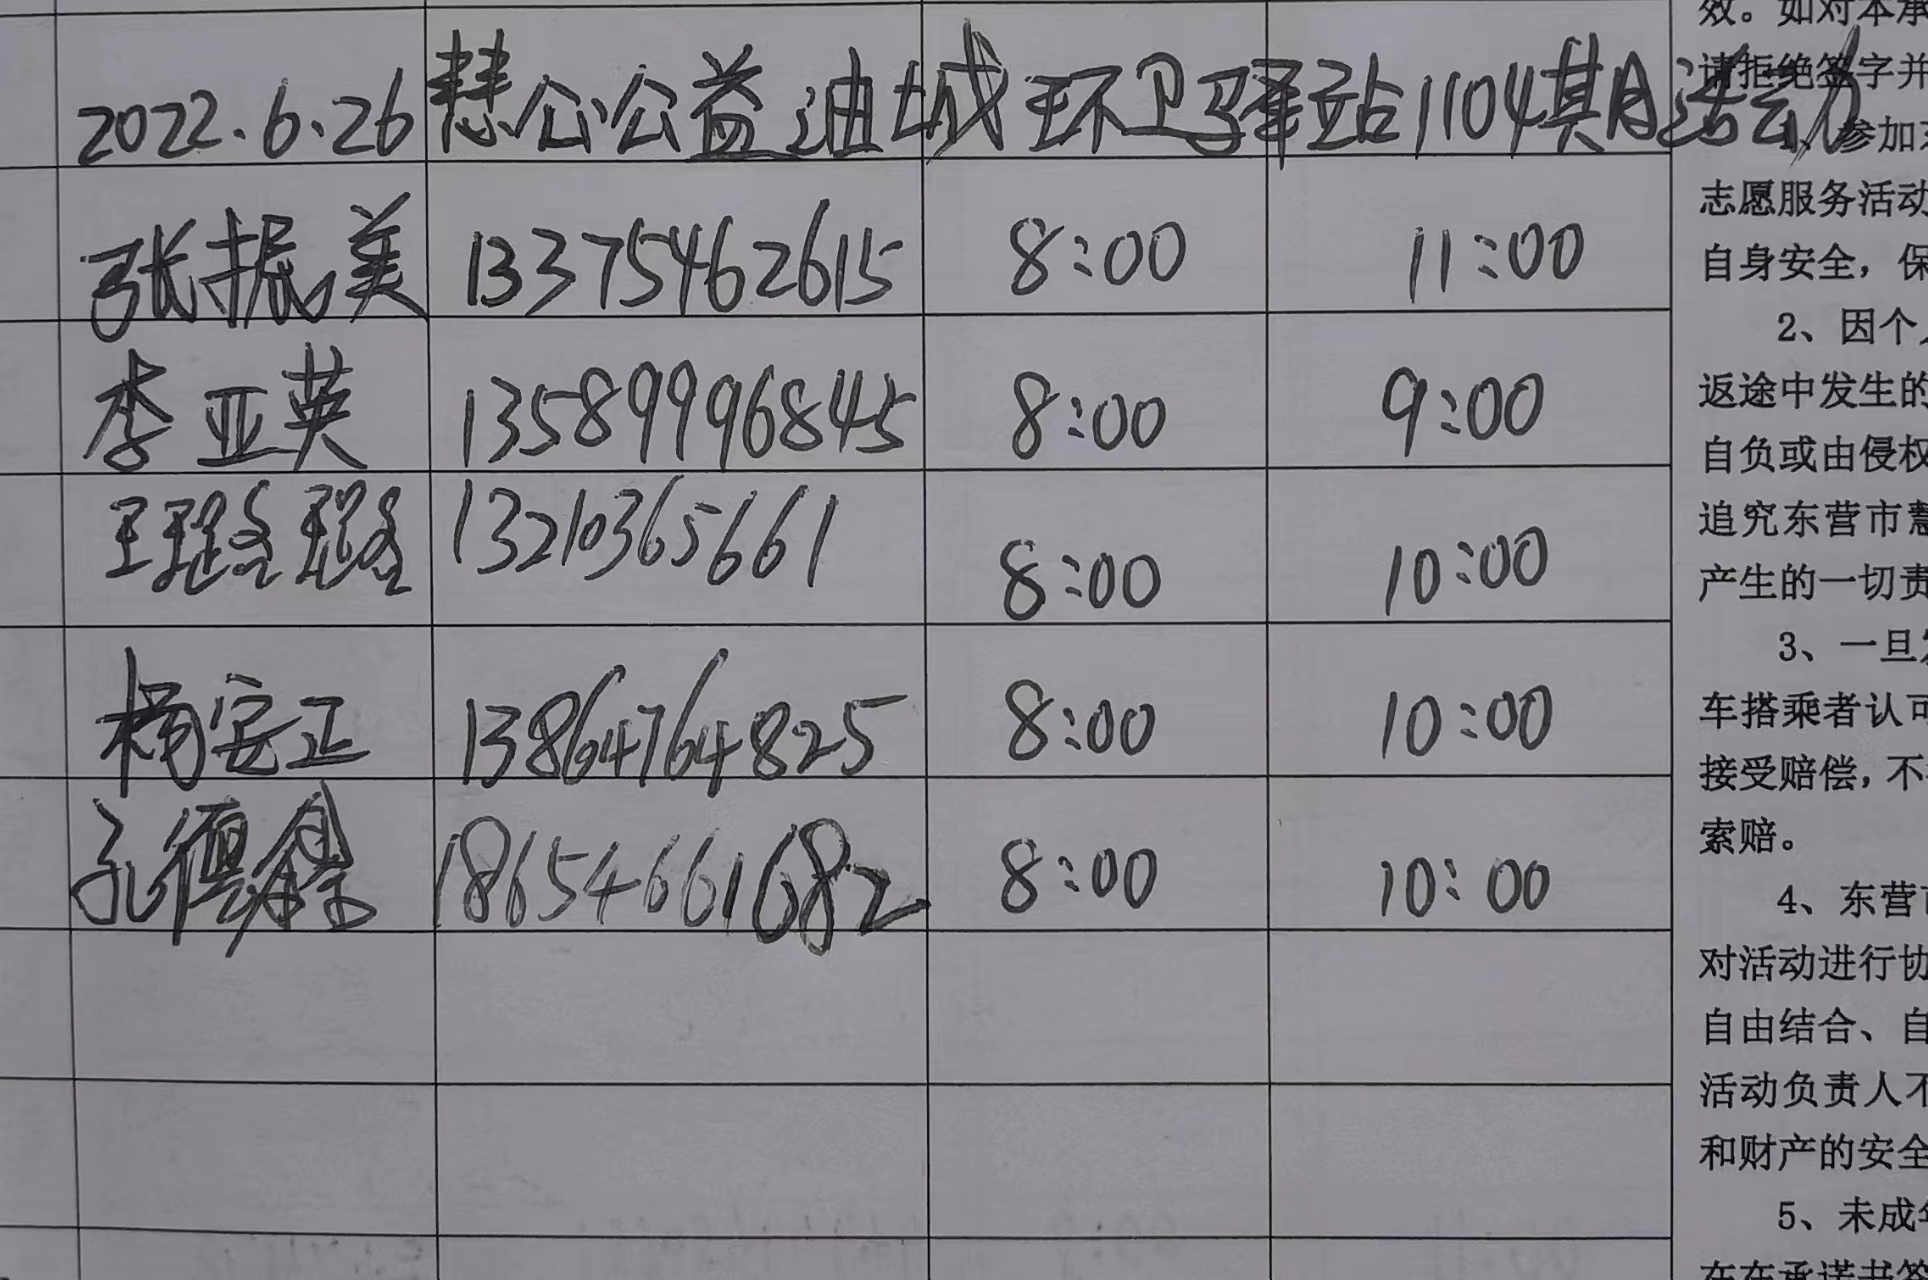 2022.6.26 慧公公益油城环卫驿站1104期活动
张振美 13375462615 8:00 11:00
李亚英 13589996845 8:00 9:00
王璐璐 13210365661 8:00 10:00
杨安正 13864764825 8:00 10:00
孔德 18654661682 8:00 10:00
效。如对本承
请拒绝签字并
1、参加
志愿服务活动
自身安全，保
2、因个
返途中发生的
自负或由侵权
追究东营市慧
产生的一切责
3、一旦发
车搭乘者认可
接受赔偿，不
索赔。
4、东营市
对活动进行协
自由结合、自
活动负责人不
和财产的安全
5、未成年
在在承诺书签